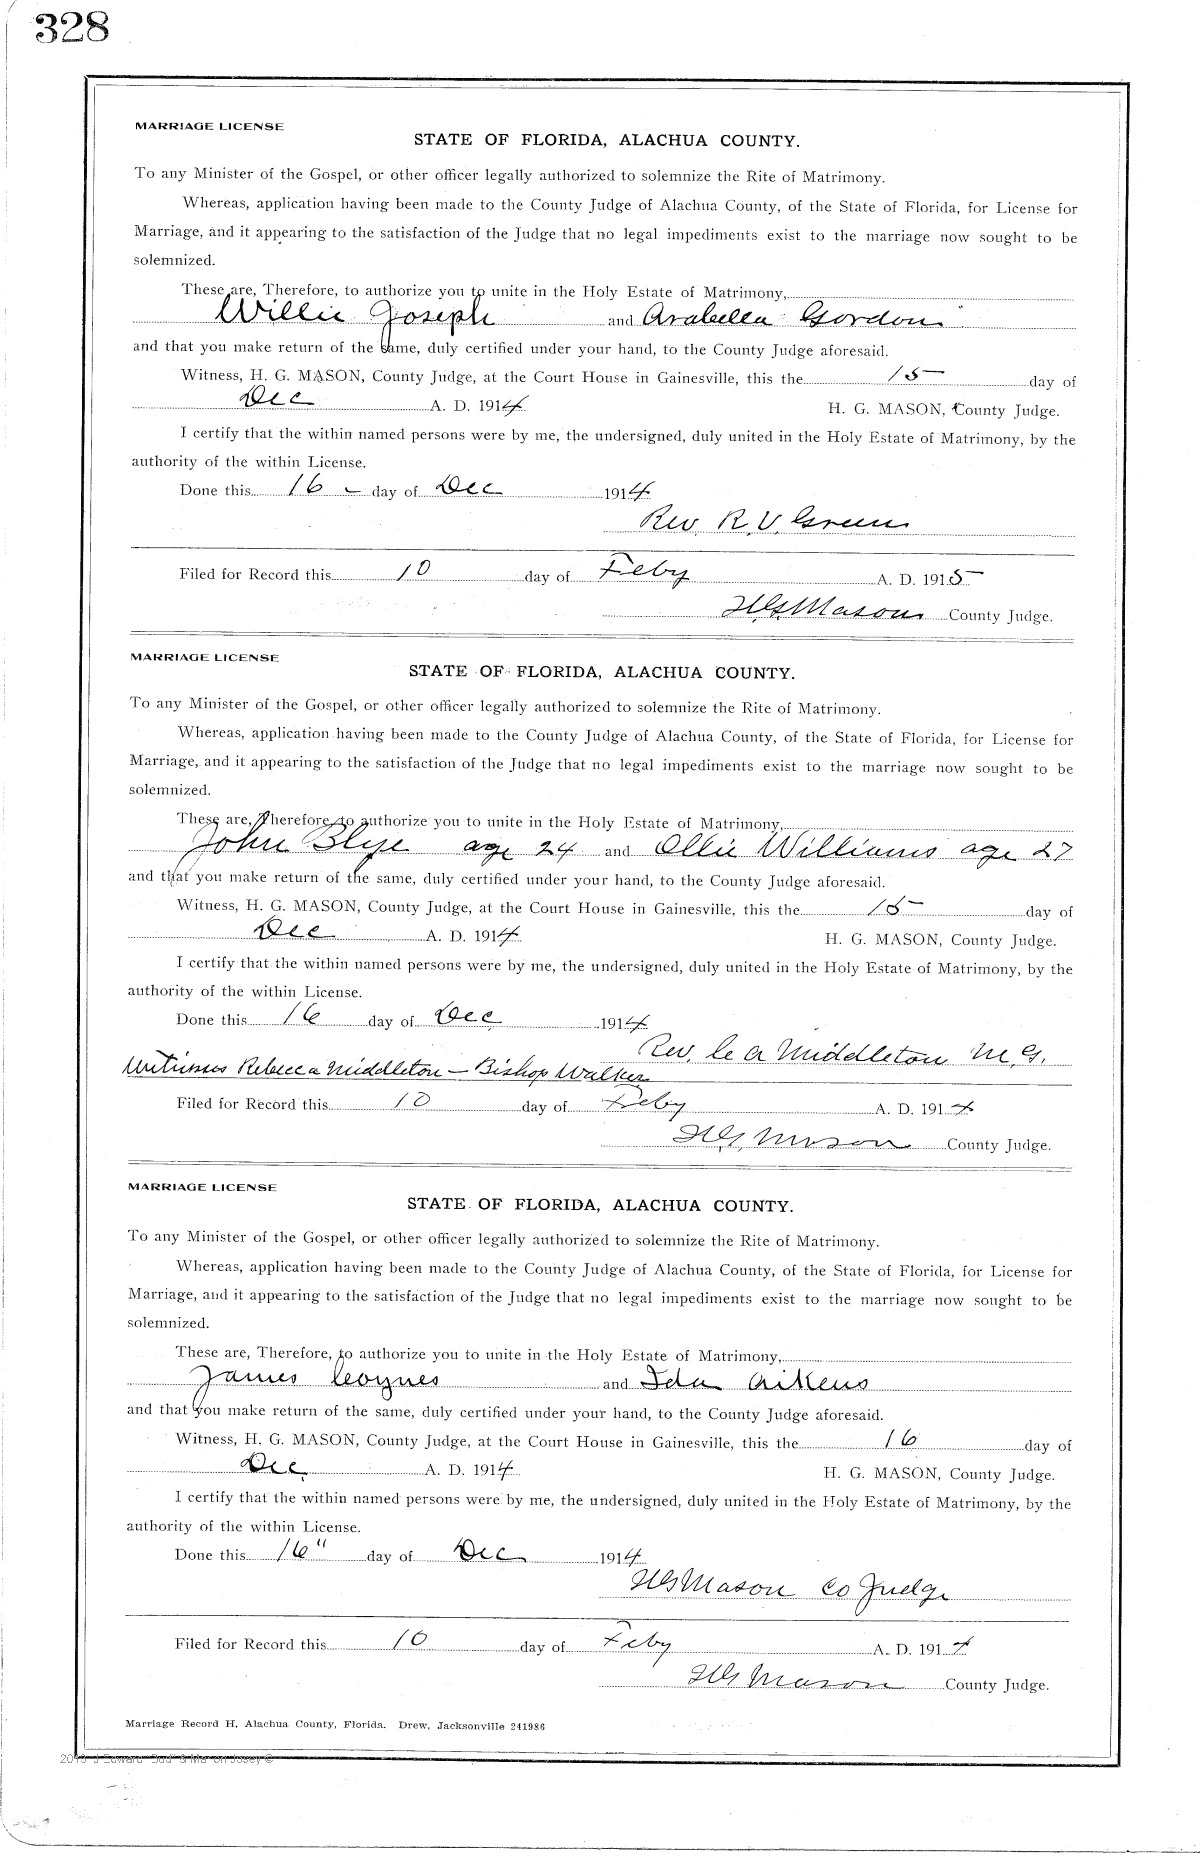 328
MARRIAGE LICENSE
STATE OF FLORIDA, ALACHUA COUNTY.
To any Minister of the Gospel, or other officer legally authorized to solemnize the Rite of Matrimony.
Whereas, application having been made to the County Judge of Alachua County, of the State of Florida, for License for
Marriage, and it appearing to the satisfaction of the Judge that no legal impediments exist to the marriage now sought to be
solemnized.
These are, Therefore, to authorize you to unite in the Holy Estate of Matrimony,
Willie Joseph and Arabella Gordon
and that you make return of the same, duly certified under your hand, to the County Judge aforesaid.
Witness, H. G. MASON, County Judge, at the Court House in Gainesville, this the 15 day of
Dec A. D. 1914 H. G. MASON, County Judge.
I certify that the within named persons were by me, the undersigned, duly united in the Holy Estate of Matrimony, by the
authority of the within License.
Done this 16 - day of Dec 1914
Rev R. V. Green
Filed for Record this 10 day of Feby A. D. 1915
H G Mason County Judge.
MARRIAGE LICENSE
STATE OF FLORIDA, ALACHUA COUNTY.
To any Minister of the Gospel, or other officer legally authorized to solemnize the Rite of Matrimony.
Whereas, application having been made to the County Judge of Alachua County, of the State of Florida, for License for
Marriage, and it appearing to the satisfaction of the Judge that no legal impediments exist to the marriage now sought to be
solemnized.
These are, Therefore, to authorize you to unite in the Holy Estate of Matrimony,
John Blye age 24 and Ollie Williams age 27
and that you make return of the same, duly certified under your hand, to the County Judge aforesaid.
Witness, H. G. MASON, County Judge, at the Court House in Gainesville, this the 15 day of
Dec A. D. 1914 H. G. MASON, County Judge.
I certify that the within named persons were by me, the undersigned, duly united in the Holy Estate of Matrimony, by the
authority of the within License.
Done this 16 day of Dec 1914
Rev. C A Middleton M. G.
Witness Rebecca Middleton - Bishop Walker
Filed for Record this 10 day of Feby A. D. 191
H G Mason County Judge.
MARRIAGE LICENSE
STATE OF FLORIDA, ALACHUA COUNTY.
To any Minister of the Gospel, or other officer legally authorized to solemnize the Rite of Matrimony.
Whereas, application having been made to the County Judge of Alachua County, of the State of Florida, for License for
Marriage, and it appearing to the satisfaction of the Judge that no legal impediments exist to the marriage now sought to be
solemnized.
These are, Therefore, to authorize you to unite in the Holy Estate of Matrimony,
James Coynes and Ida Aikens
and that you make return of the same, duly certified under your hand, to the County Judge aforesaid.
Witness, H. G. MASON, County Judge, at the Court House in Gainesville, this the 16 day of
Dec A. D. 1914 H. G. MASON, County Judge.
I certify that the within named persons were by me, the undersigned, duly united in the Holy Estate of Matrimony, by the
authority of the within License.
Done this 16" day of Dec 1914
H G Mason Co Judge
Filed for Record this 10 day of Feby A. D. 191
H G Mason County Judge.
Marriage Record H, Alachua County, Florida. Drew, Jacksonville 241986